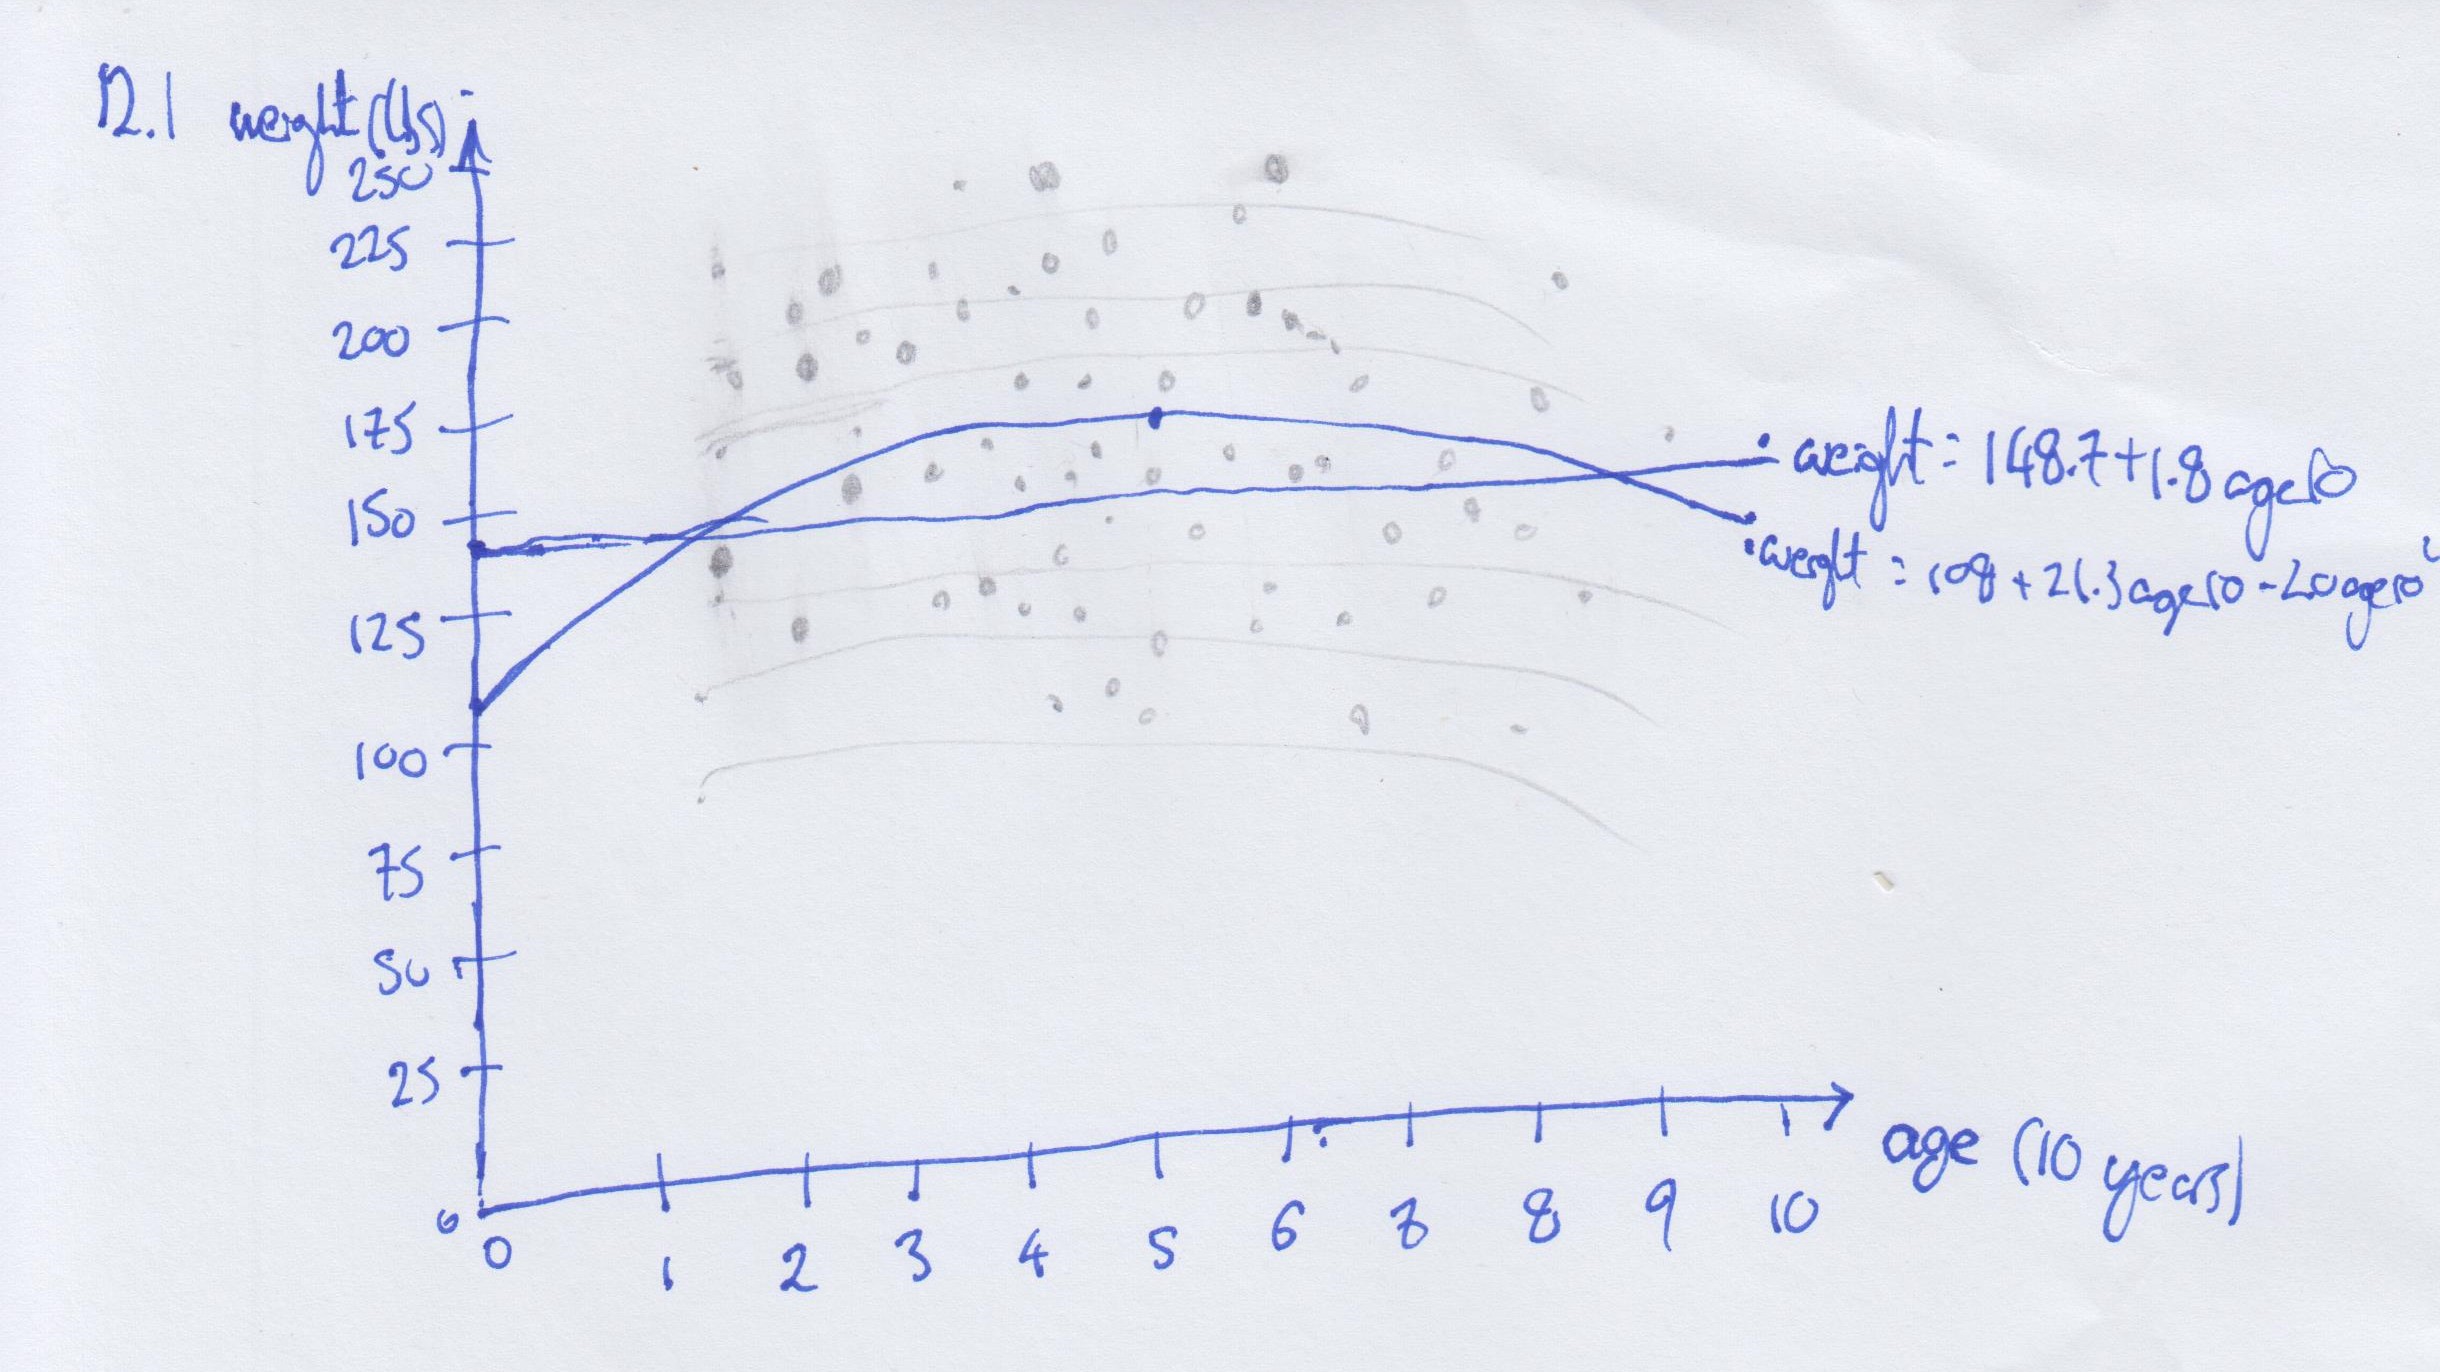 12.1 weight (lbs)
250
225
200
175
150
125
100
75
50
25
0
0 1 2 3 4 5 6 7 8 9 10
age (10 years)
weight = 148.7+1.8 age10
weight = 108 + 21.3 age10 - 2.0 age10²